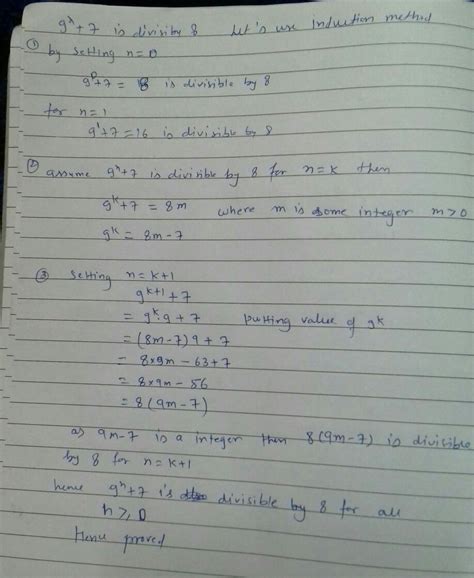 9ⁿ+7 is divisiby 8 Let's use Induction method
① by setting n=0
9⁰+7 = 8 is divisible by 8
for n=1
9¹+7 = 16 is divisible by 8
② assume 9ⁿ+7 is divisible by 8 for n=k then
9ᵏ+7 = 8m where m is some integer m>0
9ᵏ = 8m-7
③ setting n=k+1
9ᵏ⁺¹+7
= 9ᵏ.9 + 7 putting value of 9ᵏ
= (8m-7)9 + 7
= 8×9m - 63+7
= 8×9m - 56
= 8(9m-7)
as 9m-7 is a integer then 8(9m-7) is divisible
by 8 for n=k+1
hence 9ⁿ+7 is divisible by 8 for all
n≥0
Hence proved